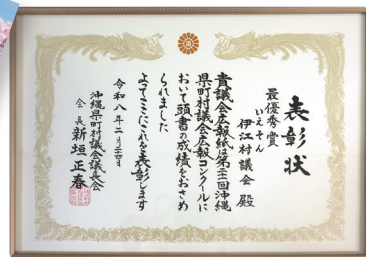 表彰状
最優秀賞
いえそん
伊江村議会殿
貴議会広報紙は第二十二回沖縄
県町村議会広報コンクールに
おいて頭書の成績をおさめ
られました
よってここにこれを表彰します
令和八年二月二十四日
沖縄県町村議会議長会
会長 新垣正春